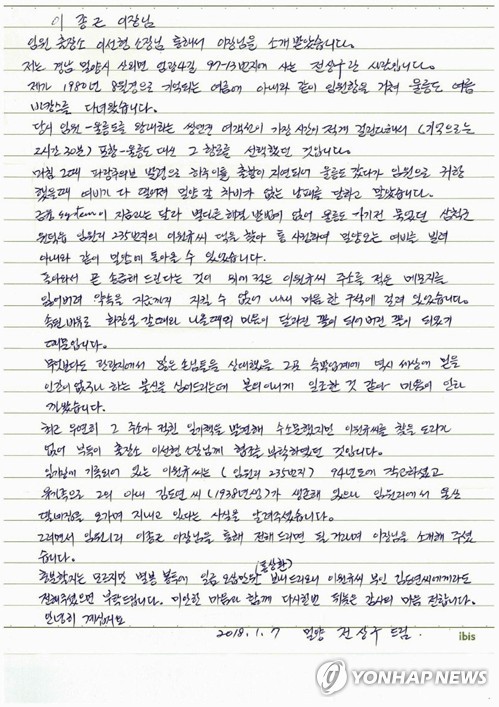 이 종근 이장님
임원 출장소 이선현 소장님 통해서 이장님을 소개 받았습니다.
저는 경남 밀양시 산외면 엄광4길 97-13번지에 사는 전상수란 사람입니다.
제가 1980년 8월경으로 기억되는 여름에 아내와 같이 임원항을 거쳐 울릉도 여름
바캉스를 다녀왔습니다.
당시 임원-울릉도를 왕래하는 쾌속 여객선이 가장 시간이 적게 걸린다해서
2시간 30분) 포항-울릉도 대신 그 항로를 선택했던 것입니다.
그때 파랑주의보 발령으로 하루이틀 출항이 지연되어 울릉도 갔다가 임원으로 귀항
했을때 여비가 다 떨어져 밀양 갈 차비가 없는 낭패를 당하고 말았습니다.
금융 system이 지금과는 달라 별다른 해결 방법이 없어 울릉도 가기전 묵었던 삼척군
원덕읍 임원리 235번지의 이원규씨 댁을 찾아 통사정하여 밀양오는 여비를 빌려
아내와 같이 밀양에 돌아올 수 있었습니다.
돌아와서 곧 송금해 드린다는 것이 적은 이원규씨 주소를 적은 메모지를
잃어버려 약속을 지금까지 지킬 수 없어 내내 마음 한 구석에 걸려 있었습니다.
속된 말로 화장실 갈 때와 나올때의 마음이 달라진 꼴이 되어버린 꼴이 되었기
때문입니다.
무엇보다도 관광지에서 많은 손님들을 상대했을 그곳 숙박업계에 역시 세상에 믿을
인간이 없구나 하는 불신을 심어드리는데 본의아니게 일조한 것 같아 마음이 안타
까웠습니다.
최근 우연히 그 주소가 적힌 일기책을 발견해 수소문했지만 이원규씨를 찾을 도리가
없어 부득이 출장소 이선현 소장님께 협조를 부탁하였던 것입니다.
일기장에 기록되어 있는 이원규씨는 (임원리 235번지) 94년도에 작고하셨고
유가족으로 그의 아내 김도연 씨 (1938년생)가 생존해 있으나 임원리에서 울산
딸네집을 오가며 지내고 있다는 사실을 알려주셨습니다.
그러면서 임원1리 이종근 이장님을 통해 전해 드리면 될 거라며 이장님을 소개해 주셨
습니다.
충분할지는 모르지만 별봉 봉투에 일금 오십만원(동상환) 보내드리오니 이원규씨 부인 김도연씨에게라도
전해주셨으면 부탁드립니다. 미안한 마음과 함께 다시한번 감사의 마음 전합니다.
안녕히 계십시요
2018. 1. 7 밀양 전상수 드림.
ibis
YONHAP NEWS